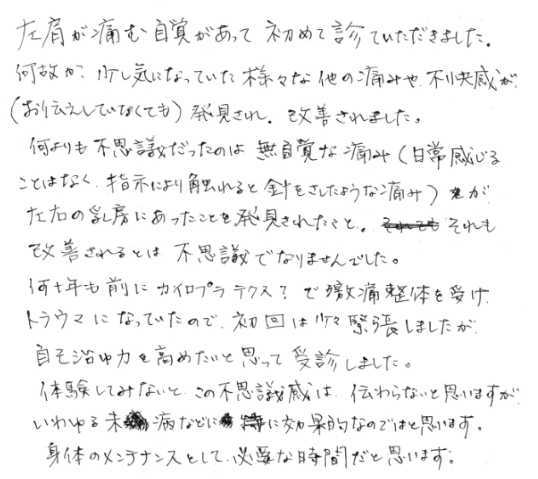 左肩が痛む自覚があって初めて診ていただきました。
何故か、少し気になっていた様々な他の痛みや不快感が
(お伝えしていなくても)発見され、改善されました。
何よりも不思議だったのは無自覚な痛み(日常感じる
ことはなく、指示により触れると針をさしたような痛み)が
左右の乳房にあったことを発見されたこと。それも
改善されるとは不思議でなりませんでした。
何十年も前にカイロプラテクス?で激痛整体を受け
トラウマになっていたので、初回は少々緊張しましたが
自己治ゆ力を高めたいと思って受診しました。
体験してみないと、この不思議感は、伝わらないと思いますが
いわゆる未病などに特に効果的なのではと思います。
身体のメンテナンスとして、必要な時間だと思います。